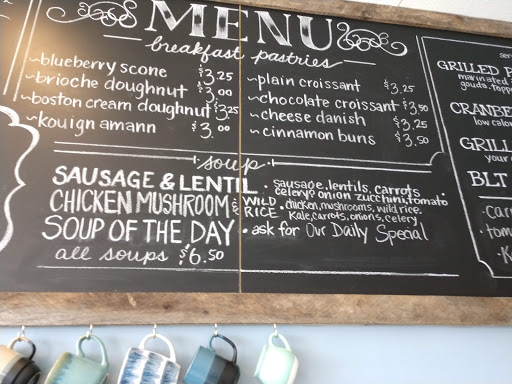 MENU
breakfast pastries
~blueberry scone $3.25
~brioche doughnut $3.00
~boston cream doughnut $3.25
~kouign amann $3.00
~plain croissant $3.25
~chocolate croissant $3.50
~cheese danish $3.25
~cinnamon buns $3.50
soup
SAUSAGE & LENTIL • sausage, lentils, carrots
celery, onion zucchini, tomato
CHICKEN MUSHROOM & WILD RICE • chicken, mushrooms, wild rice.
Kale, carrots, onions, celery
SOUP OF THE DAY • ask for Our Daily Special
all soups $6.50
GRILLED
marinated
gouda, topp
CRANBE
low calor
GRILL
your
BLT
•car
tom